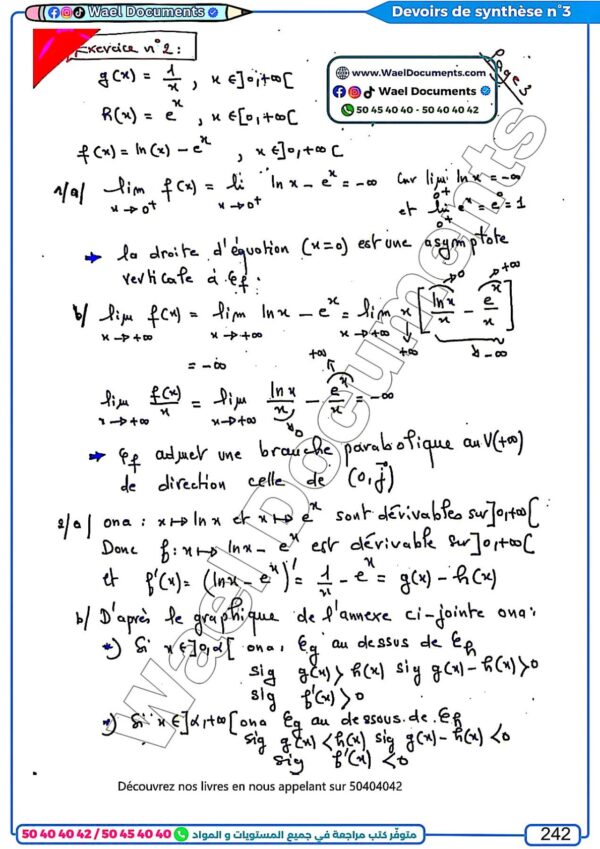 Wael Documents
Devoirs de synthèse n°3
Exercice n°2:
Page 3
www.WaelDocuments.com
Wael Documents
50 45 40 40 - 50 40 40 42
g(x) = 1/x , x ∈]0,+∞[
h(x) = e^x , x ∈[0,+∞[
f(x) = ln(x) - e^x , x ∈]0,+∞[
1/a/ lim x→0+ f(x) = li x→0+ ln x - e^x = -∞ car lim 0+ ln x = -∞
et lim 0+ e^x = e^0 = 1
→ la droite d'équation (x=0) est une asymptote
verticale à ζf.
b/ lim x→+∞ f(x) = lim x→+∞ ln x - e^x = lim x→+∞ x [ ln x/x - e^x/x ]
→0 →+∞
+∞ → -∞
= -∞
lim x→+∞ f(x)/x = lim x→+∞ ln x/x - e^x/x = -∞
+∞
→0
→ ζf admet une branche parabolique au V(+∞)
de direction celle de (O,j)
2/a/ ona : x↦ln x et x↦e^x sont dérivables sur ]0,+∞[
Donc f: x↦ ln x - e^x est dérivable sur ]0,+∞[
et f'(x) = (ln x - e^x)' = 1/x - e^x = g(x) - h(x)
b/ D'après le graphique de l'annexe ci-jointe ona:
*) Si x∈]0,α[ ona, ζg au dessus de ζh
sig g(x) > h(x) sig g(x) - h(x) >0
sig f'(x) >0
*) Si x∈]α,+∞[ ona ζg au dessous de ζh
sig g(x) < h(x) sig g(x) - h(x) <0
sig f'(x) <0
Wael Documents
Découvrez nos livres en nous appelant sur 50404042
50 40 40 42 / 50 45 40 40 متوفّر كتب مراجعة في جميع المستويات و المواد
242